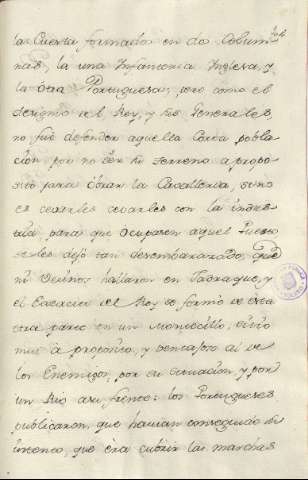 la Cuesta formados en dos Colum
nas, la una Infanteria Inglesa, y
la otra Portuguesa, pero como el
designio del Rey, y sus Generales,
no fué defender aquella Corta pobla
cion por no ser su terreno a propo
sito para obrar la Cavalleria, sino
es
con la
para que Ocupasen aquel Puesto
se les dejó tan desembarazado, que
ni Vecinos hallaron en Jadraque, y
el Exercito del Rey se formó de esta
otra parte en un Montecillo, sitio
muy a proposito, y ventajoso al de
los Enemigos, por su situacion, y por
un Rio a su frente: los Portugueses
publicaron que havian conseguido su
intento, que era cubrir las marchas